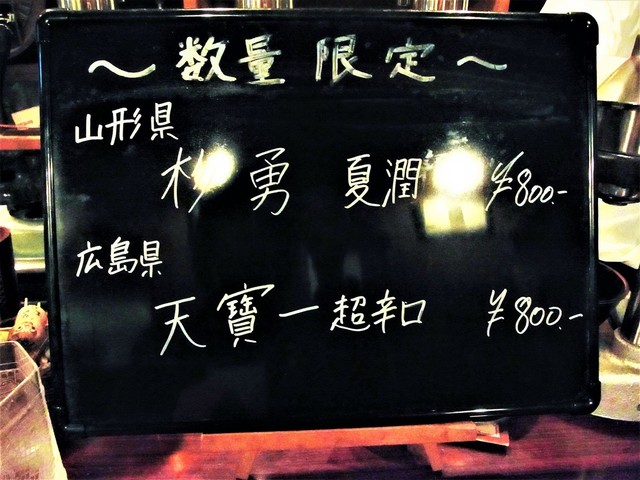 ～数量限定～
山形県
杉勇 夏潤 ¥800.-
広島県
天寶一超辛口 ¥800.-